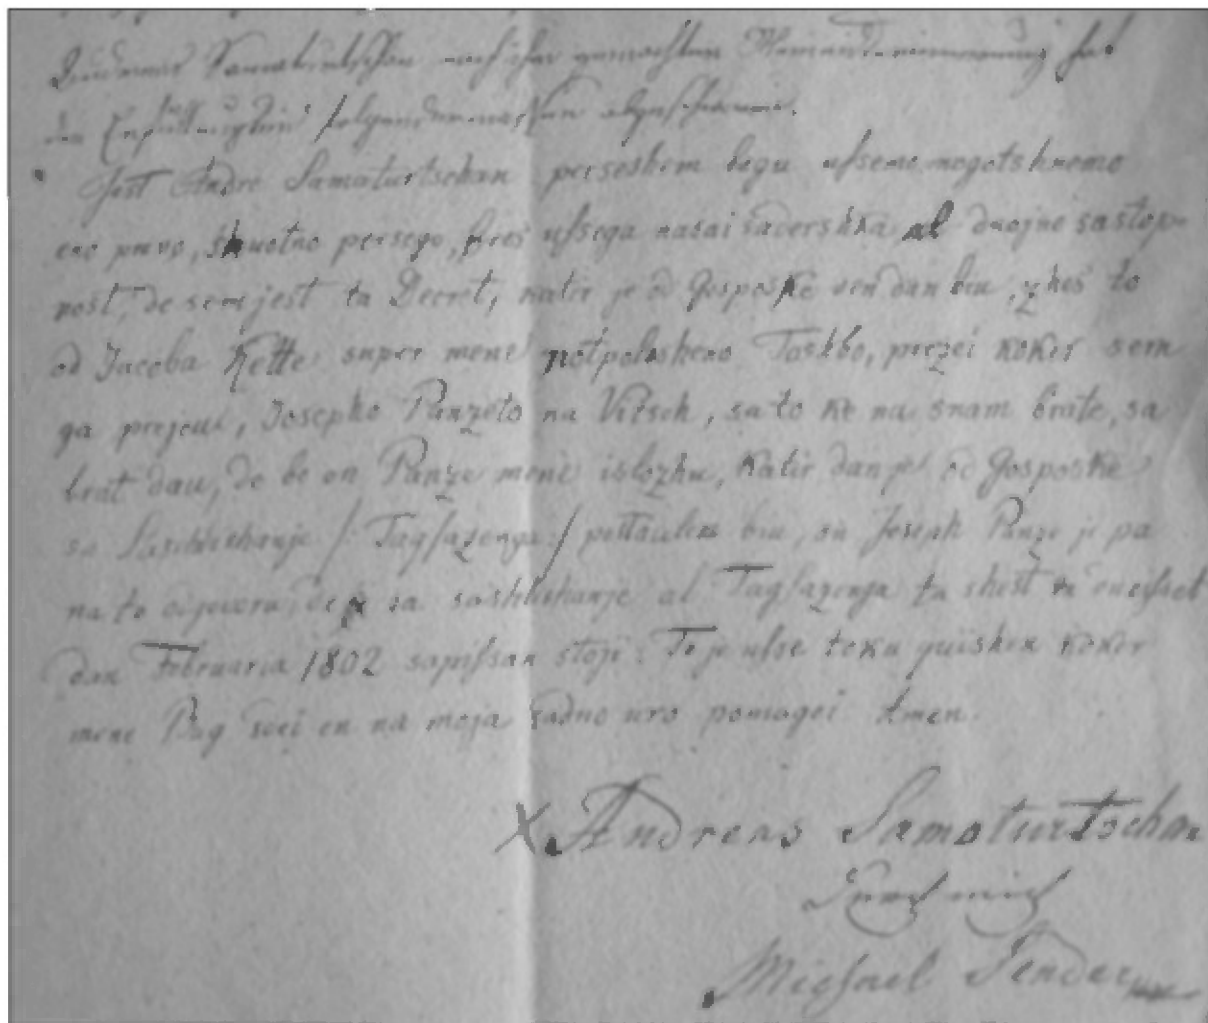 Andreas Samaturtschan nach ihm gemachten hat
den folgendermassen abgeschworen.
Jest Andre Samaturtschan perseshem bogu ussemo mogotshnemo
eno pravo, shuotno persego, bres ussega nasai sadershka al duojne sastop-
nost, de sem jest ta Decret, katir je od Gosposke ven dan biu, zhes to
od Jacoba Kette super mene notpolosheno Toshbo, prezei koker sem
ga prejeu, Josepho Panzeto na Vitsch, sa to ke na snam brate, sa
brat dau, de be on Panze mene islozhu, katir dan je od Gosposke
sa Saschlishanje /: Tagsazenga :/ postaulen biu, on Joseph Panze je pa
na to odgovoru, de sa sashlishanje al Tagsazenga ta shest
dan Februaria 1802 sapissan stoji: To je usse toku guishen koker
mene Bug suei en na moja sadno uro pomagei Amen.
X Andreas Samaturtschan
Durch mich
Michael Tender